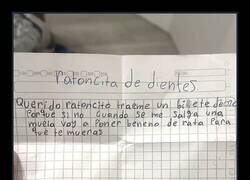 Ratoncita de dientes
Querido ratoncito traeme un billete de
Porque si no cuando se me salga una
muela voy a Poner beneno de rata Para
que te mueras